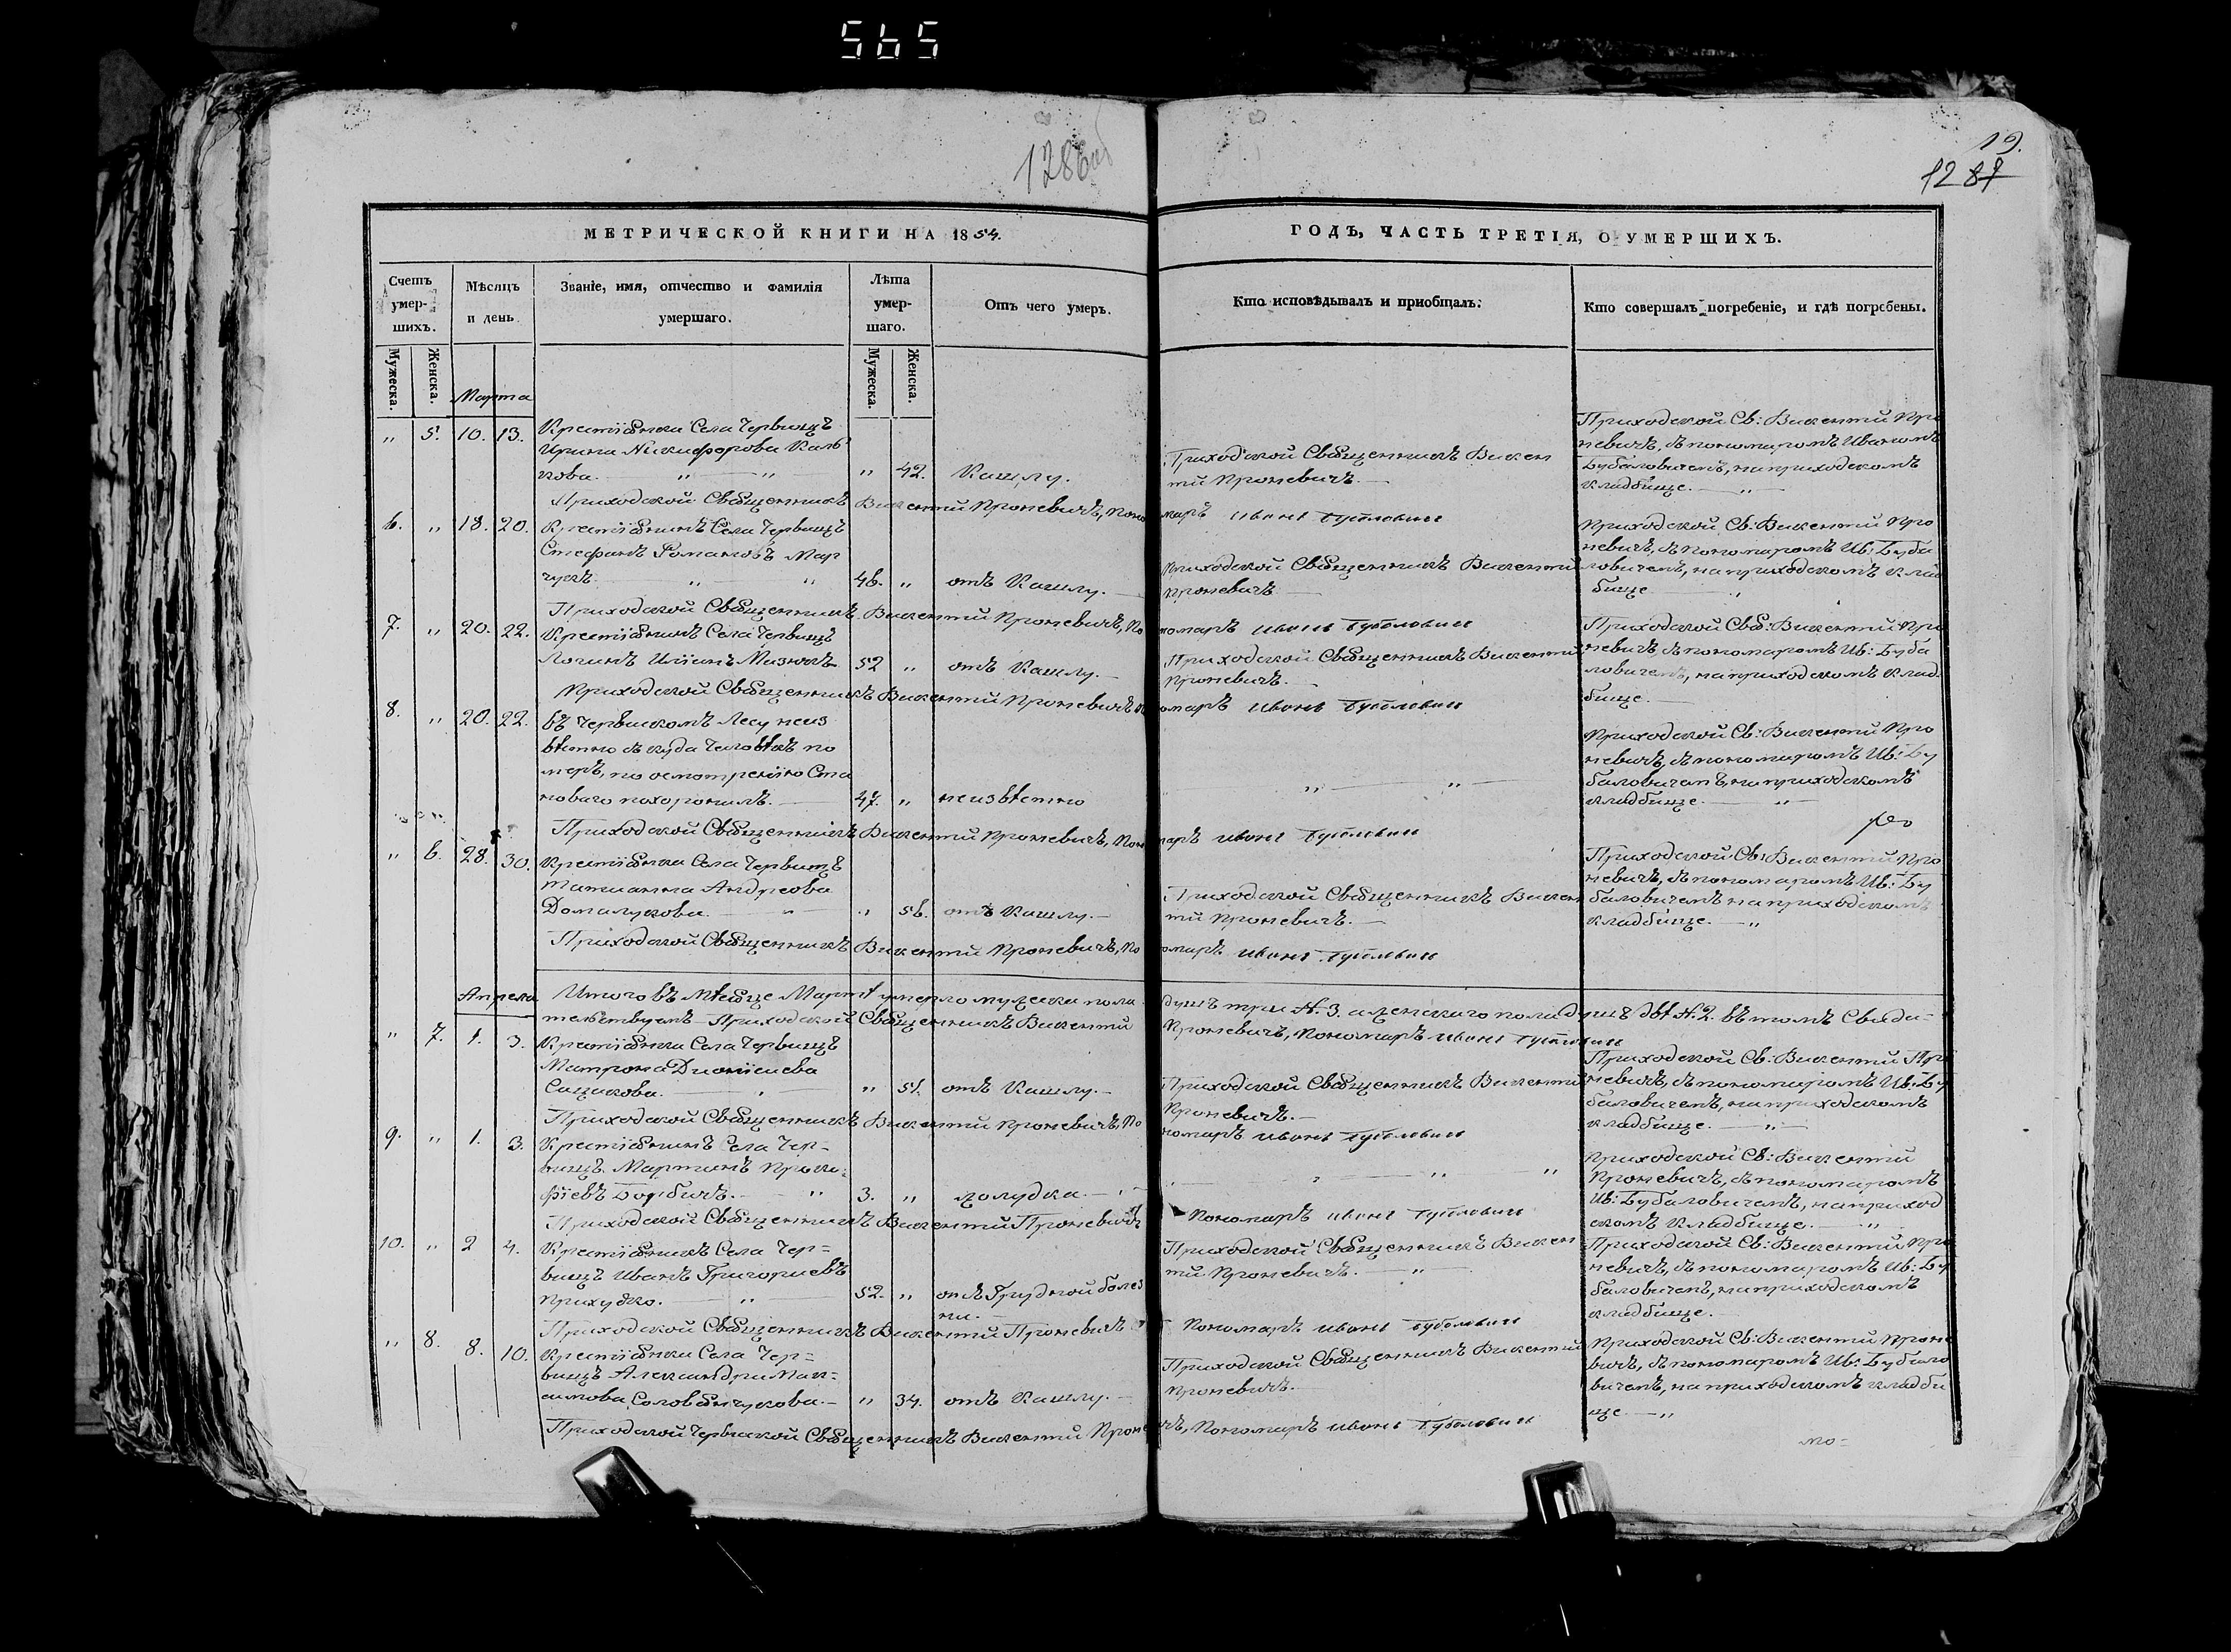 565
1286об
19.
1287
МЕТРИЧЕСКОЙ КНИГИ НА 1854.
ГОДЪ, ЧАСТЬ ТРЕТІЯ, О УМЕРШИХЪ.
Счетъ умер-шихъ.
Мѣсяцъ и день
Званіе, имя, отчество и фамилія умершаго.
Лѣта умер-шаго.
Отъ чего умеръ.
Кто исповѣдывалъ и пріобщалъ.
Кто совершалъ погребеніе, и гдѣ погребены.
Мужеска.
Женска.
Мужеска.
Женска.
Марта
„ 5. 10. 13. Крестіянка Села Червищъ
Ирина Никифорова Каль
кова. „ „ „ 42. Кашлу.
Приходской Священникъ Викен
тій Проневичъ.
Приходской Св: Викентій Про
невичъ, съ пономаромъ Иваномъ
Бубаловичемъ, на приходскомъ
кладбище. „
Приходской Священникъ Викентій Проневичъ, Пономаръ Иванъ Бубаловичъ
6. „ 18. 20. Крестіянинъ Села Червищъ
Стефанъ Романовъ Мар
чукъ. „ „ 46. „ отъ Кашлу.
Приходской Священникъ Викентій
Проневичъ
Приходской Св: Викентій Про
невичъ, съ пономаромъ Ив: Буба
ловичемъ, на приходскомъ клад
бище „
Приходской Священникъ Викентій Проневичъ, Пономаръ Иванъ Бубаловичъ
7. „ 20. 22. Крестіянинъ Села Червищъ
Логинъ Иліинъ Мизюкъ 52 „ отъ Кашлу.
Приходской Священникъ Викентій
Проневичъ.
Приходской Свя: Викентій Про
невичъ съ пономаромъ Ив: Буба
ловичемъ, на приходскомъ клад
бище.
Приходской Священникъ Викентій Проневичъ Пономаръ Иванъ Бубаловичъ
8. „ 20. 22. въ Червискомъ Лесу неиз
вѣстно съ куда Человѣкъ по
меръ, по осмотренію Ста
новаго похоронилъ. 47. „ неизвѣстно
„ „
Приходской Св: Викентій Про
невичъ, съ пономаромъ Ив: Бу
баловичемъ, на приходскомъ
кладбище. „
Приходской Священникъ Викентій Проневичъ, Пономаръ Иванъ Бубаловичъ
„ 6. 28. 30. Крестіянка Села Червищъ
Татианна Андреова
Домалукова. „ „ 56. отъ Кашлу.
Приходской Священникъ Викен
тій Проневичъ.
Приходской Св: Викентій Про
невичъ, съ пономаромъ Ив: Бу
баловичемъ на приходскомъ
кладбище. „
Приходской Священникъ Викентій Проневичъ, Пономаръ Иванъ Бубаловичъ
Апреля Итого въ Мѣсяце Мартѣ умерло мужеска пола душъ три №. 3. а женскаго пола душъ двѣ №. 2. въ томъ Свиде-
тельствуемъ Приходской Священникъ Викентій Проневичъ, Пономаръ Иванъ Бубаловичъ
„ 7. 1. 3. Крестіянка Села Червищъ
Матрона Дионісиева
Сацюкова. „ „ 51. отъ Кашлу.
Приходской Священникъ Викентій
Проневичъ.
Приходской Св: Викентій Про
невичъ, съ пономаромъ Ив: Бу
баловичемъ, на приходскомъ
кладбище. „
Приходской Священникъ Викентій Проневичъ, Пономаръ Иванъ Бубаловичъ
9. „ 1. 3. Крестіянинъ Села Чер=
вищъ Мартинъ Проко=
фіевъ „ 3. „ золудка.
„ „ „
Приходской Св: Викентій
Проневичъ, съ пономаромъ
Ив: Бубаловичемъ, на приход
скомъ кладбище. „
Приходской Священникъ Викентій Проневичъ Пономаръ Иванъ Бубаловичъ
10. „ 2 4. Крестіянинъ Села Чер=
вищъ Иванъ Григориевъ
Прихудко. „ 52. „ отъ Грудной болез
ни.
Приходской Священникъ Викен
тій Проневичъ. „
Приходской Св: Викентій Про
невичъ, съ пономаромъ Ив: Бу
баловичемъ, на приходскомъ
кладбище.
Приходской Священникъ Викентій Проневичъ Пономаръ Иванъ Бубаловичъ
„ 8. 8. 10. Крестіянка Села Чер=
вищъ Александра Мак=
симова Соловянчукова. „ 34. отъ Кашлу.
Приходской Священникъ Викентій
Проневичъ.
Приходской Св: Викентій Проне
вичъ, съ пономаромъ Ив: Бубало
вичемъ, на приходскомъ кладби
ще. „
Приходской Червиской Священникъ Викентій Проневичъ, Пономаръ Иванъ Бубаловичъ